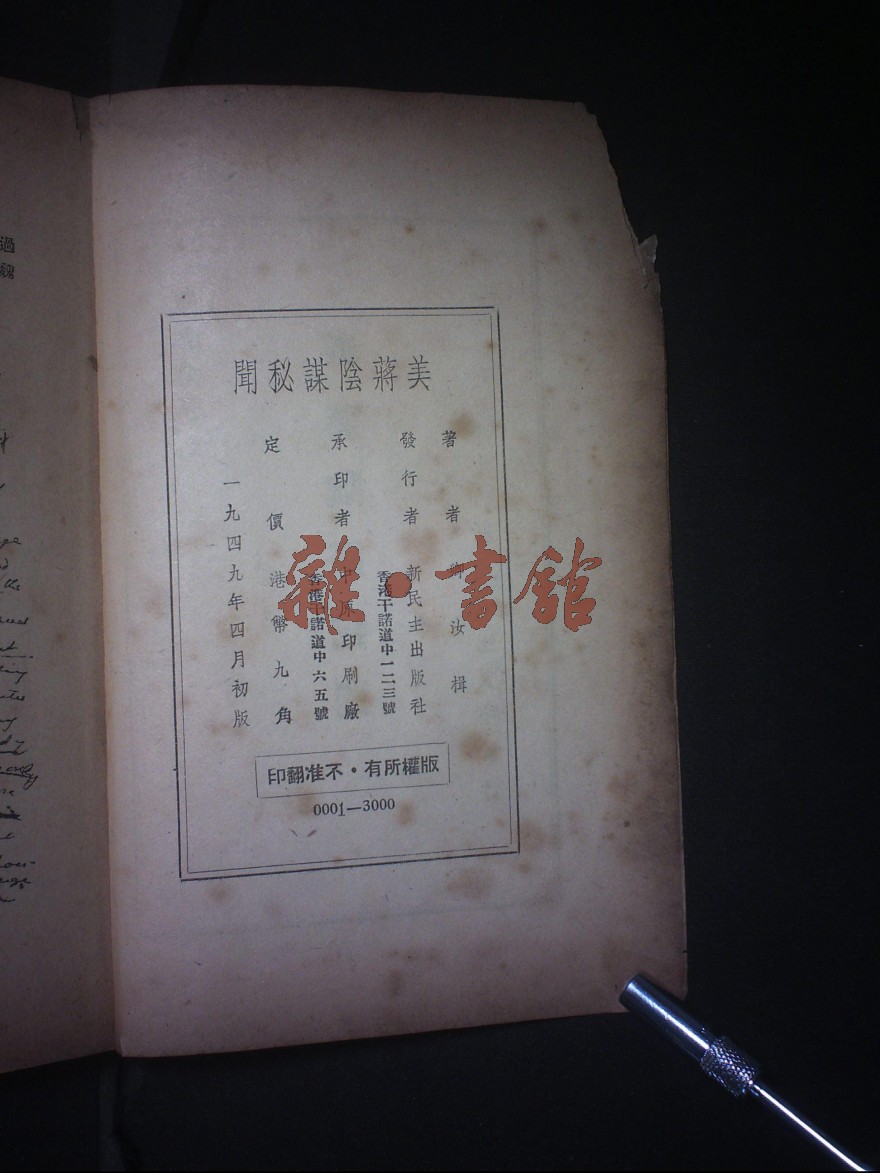 美蔣陰謀秘聞
著者 卿汝楫
發行者 新民主出版社
香港干諾道中一二三號
承印者 中原印刷廠
香港干諾道中六五號
定價港幣九角
一九四九年四月初版
版權所有・不准翻印
0001—3000
雜・書館
過
魏
the